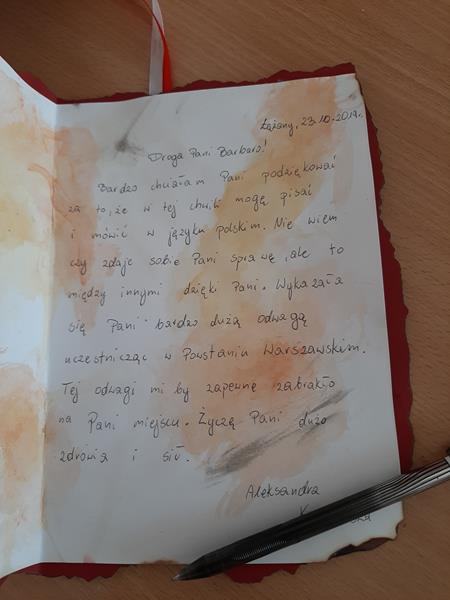 Łężany, 23.10.2019r.
Droga Pani Barbaro!
Bardzo chciałam Pani podziękować
za to, że w tej chwili mogę pisać
i mówić w języku polskim. Nie wiem
czy zdaje sobie Pani sprawę, ale to
między innymi dzięki Pani. Wykazała
się Pani bardzo dużą odwagą
uczestnicząc w Powstaniu Warszawskim.
Tej odwagi mi by zapewne zabrakło
na Pani miejscu. Życzę Pani dużo
zdrowia i sił.
Aleksandra